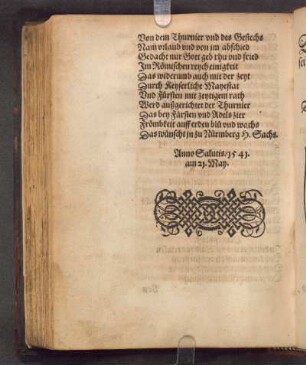 Von dem Thurnier vnd des Gestechs
Nam vrlaub vnd von jm abschied
Gedacht mir Gott geb rhu vnd fried
Jm Römischen reych einigkeit
Das widerumb auch mit der zeyt
Durch Keyserliche Mayestat
Vnd Fürsten mit zeytigem rath
Werd außgerichtet der Thurnier
Das bey Fürsten vnd Adels zier
Frömbkeit auff erden blü vnd wachs
Das wünscht jn zu Nürmberg H. Sachs.
Anno Salutis / 1541.
am 21. May.